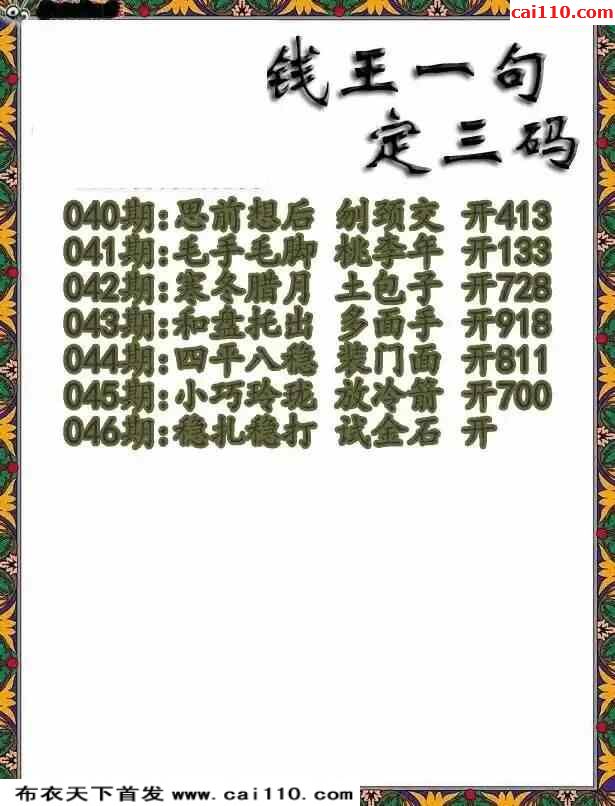 cai110.com
钱王一句
定三码
040期:思前想后 刎颈交 开413
041期:毛手毛脚 桃李年 开133
042期:寒冬腊月 土包子 开728
043期:和盘托出 多面手 开918
044期:四平八稳 装门面 开811
045期:小巧玲珑 放冷箭 开700
046期:稳扎稳打 试金石 开
布衣天下首发 www.cai110.com